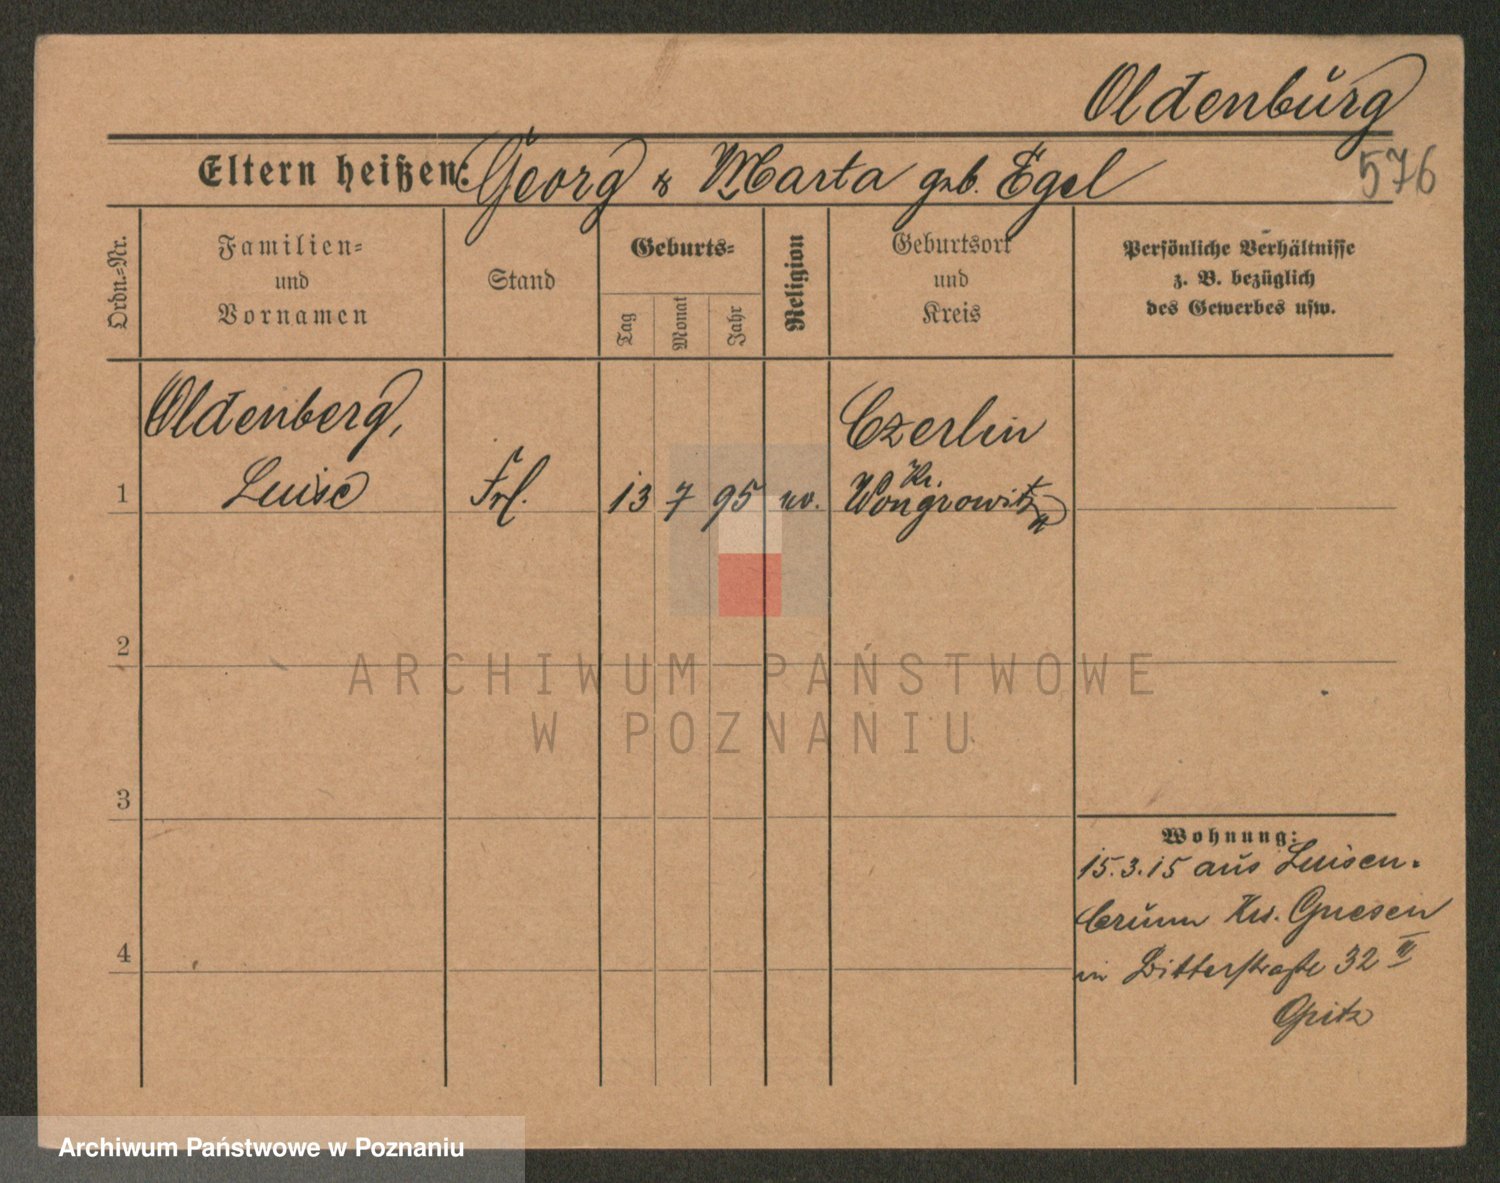 Oldenbŭrg
576
Eltern heißen: Georg & Marta geb. Egel
Ordn.=Nr.
Familien=
und
Vornamen
Stand
Geburts=
Tag
Monat
Jahr
Religion
Geburtsort
und
Kreis
Persönliche Verhältnisse
z. B. bezüglich
des Gewerbes usw.
Oldenberg,
Luise
1
Frl.
13 7 95 ev.
Czerlin
Kr.
Wongrowitz
2
ARCHIWUM PAŃSTWOWE
W POZNANIU
3
Wohnung:
15.3.15 aŭs Luisen-
brŭnn Krs. Gnesen
in Ritterstraße 32 II
Opitz
4
Archiwum Państwowe w Poznaniu